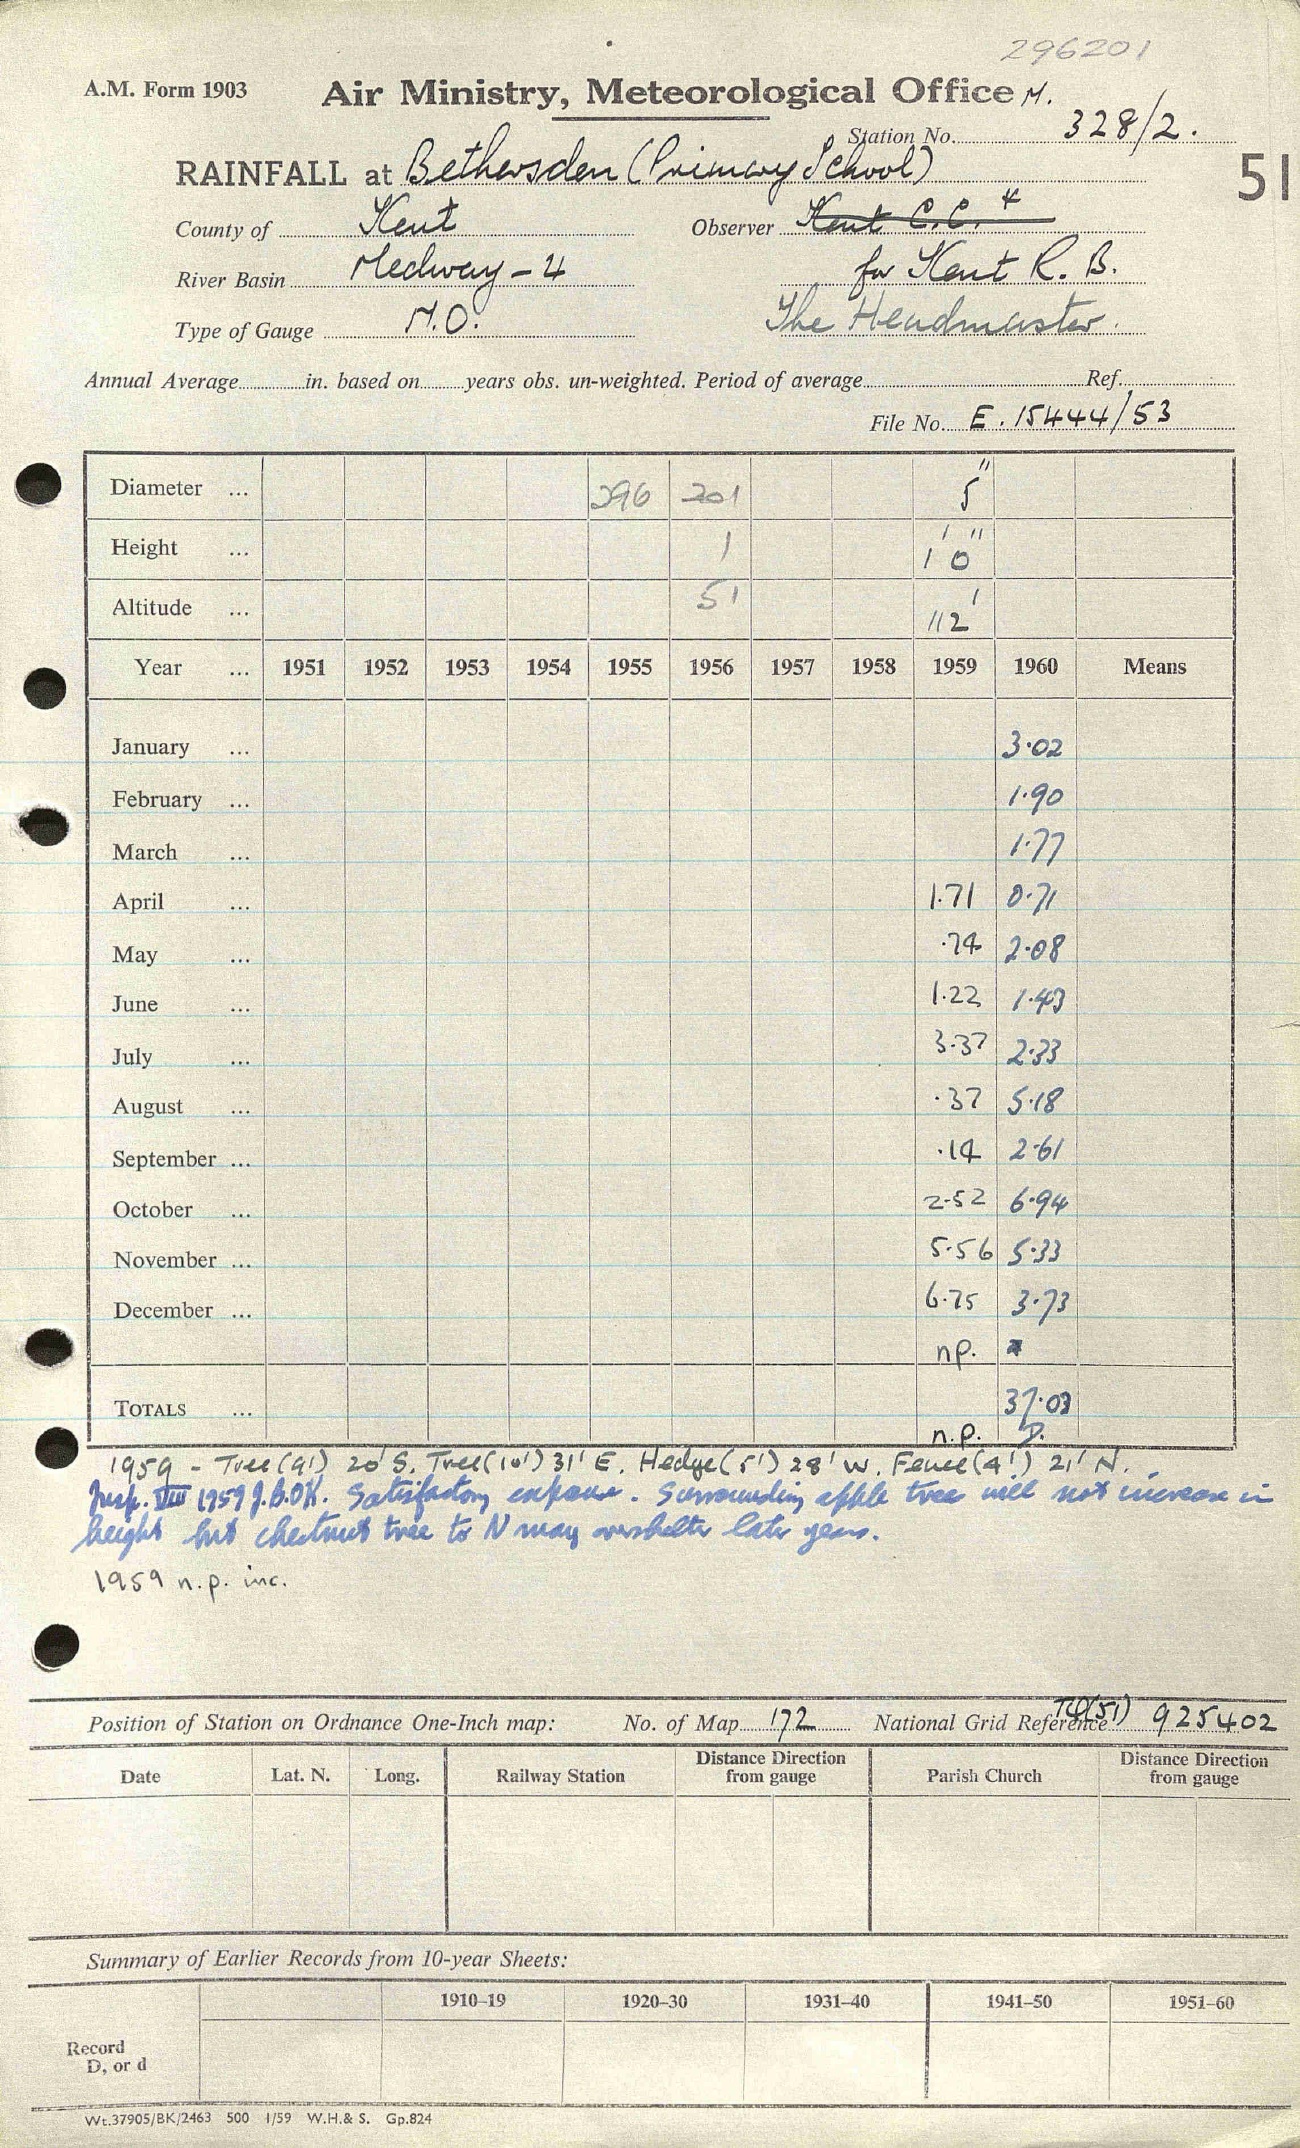 296201
A.M. Form 1903 Air Ministry, Meteorological Office M.
Station No. 328/2.
RAINFALL at Bethersden (Primary School)
51
County of Kent Observer Kent C.C. *
River Basin Medway - 4 for Kent R. B.
Type of Gauge M.O. The Headmaster.
Annual Average in. based on years obs. un-weighted. Period of average Ref.
File No. E. 15444/53
Diameter ... 296 201 5"
Height ... 1 1' 0"
Altitude ... 51 112'
Year ... 1951 1952 1953 1954 1955 1956 1957 1958 1959 1960 Means
January ... 3.02
February ... 1.90
March ... 1.77
April ... 1.71 0.71
May ... .74 2.08
June ... 1.22 1.43
July ... 3.37 2.33
August ... .37 5.18
September ... .14 2.61
October ... 2.52 6.94
November ... 5.56 5.33
December ... 6.75 3.73
n.p.
TOTALS ... 37.03
n.p. D.
1959 - Tree (9') 20' S. Tree (10') 31' E. Hedge (5') 28' W. Fence (4') 21' N.
Insp. VIII 1959 J.B.OK. Satisfactory exposure. Surrounding apple trees will not increase in
height but chestnut tree to N may overshelter later years.
1959 n.p. inc.
Position of Station on Ordnance One-Inch map: No. of Map 172 National Grid Reference TQ(51) 925402
Date Lat. N. Long. Railway Station Distance Direction from gauge Parish Church Distance Direction from gauge
Summary of Earlier Records from 10-year Sheets:
1910–19 1920–30 1931–40 1941–50 1951–60
Record
D, or d
Wt.37905/BK/2463 500 1/59 W.H.& S. Gp.824